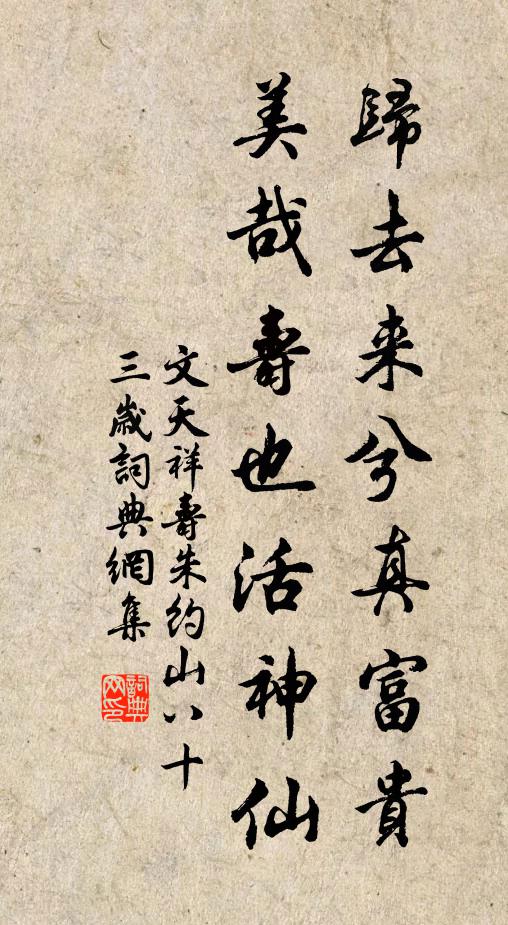 歸去来兮真富貴
美哉壽也活神仙
文天祥壽朱約山八十
三歲詞典網集
詞典
网印